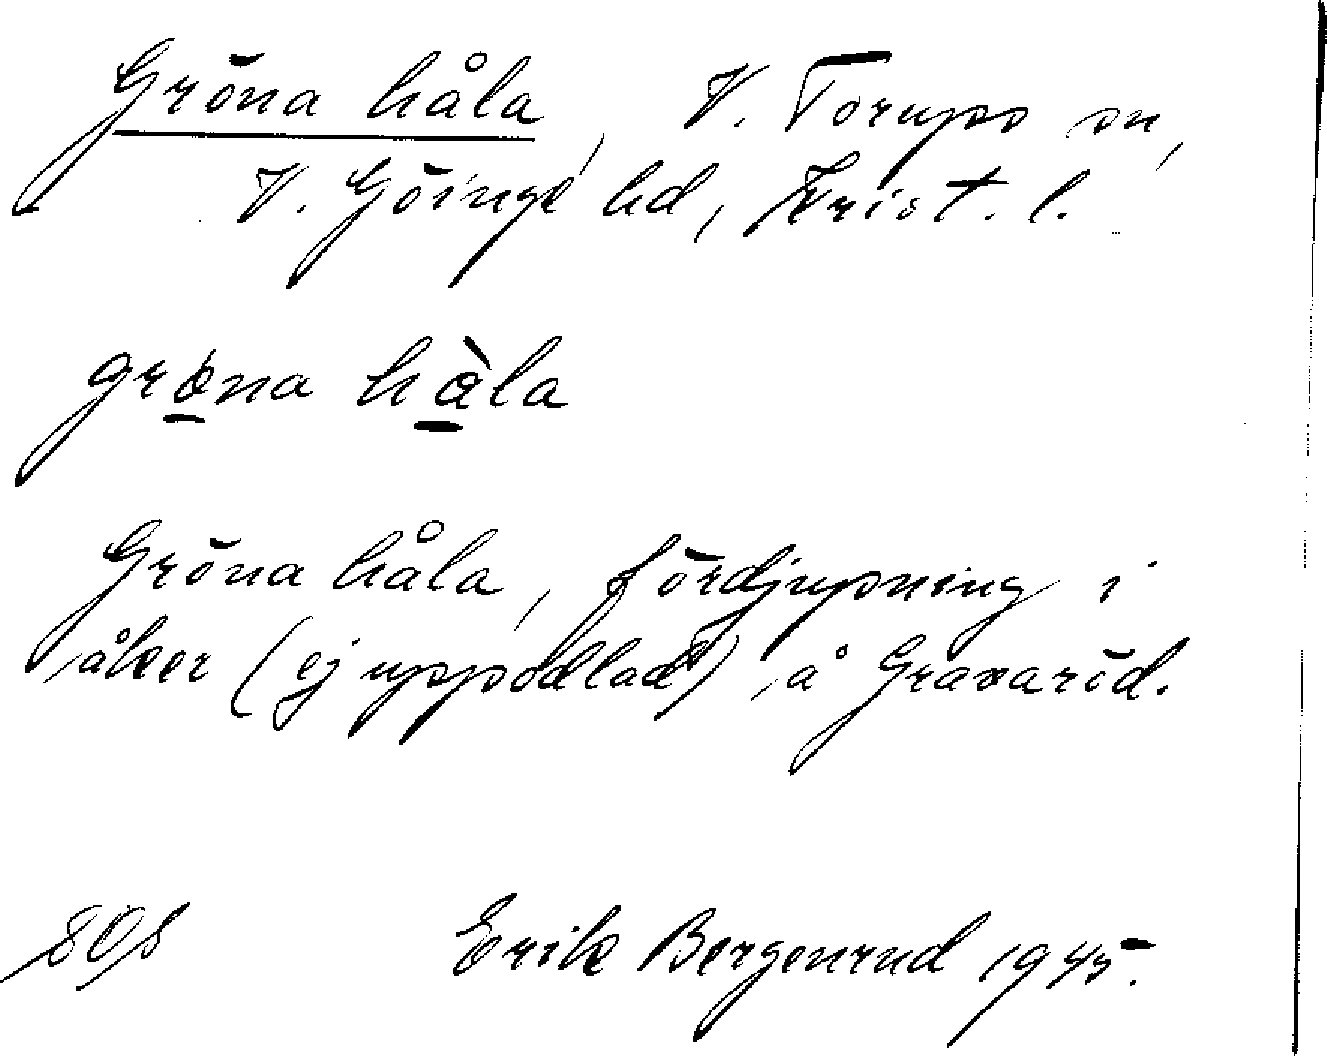 Gröna håla, V. Torups sn,
V. Göinge hd, Krist. l.
grøna hàla
Gröna håla, fördjupning i
åker (ej uppodlad) å Gravaröd.
808 Erik Bergenrud 1945.